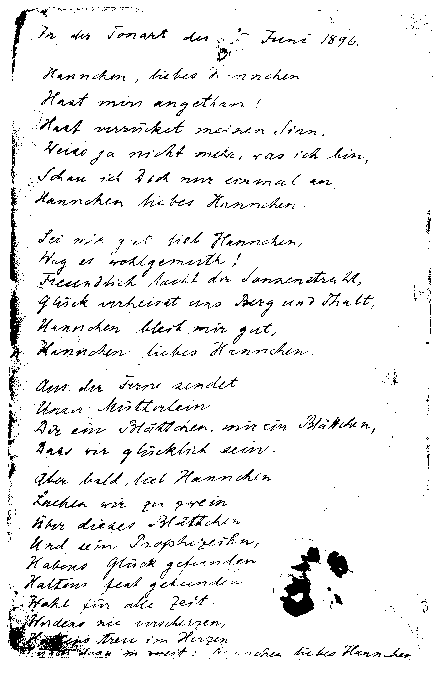 In der Tonart der Juni 1896.
Hannchen, liebes Hannchen
Hast mirs angethan!
Hast verrücket meinen Sinn,
Weiss ja nicht mehr, was ich bin,
Schau ich Dich nur einmal an,
Hannchen liebes Hannchen.
Sei mir gut lieb Hannchen,
Wag es wohlgemuth!
Freundlich lacht der Sonnenstrahl,
Glück verheisst uns Berg und Thall,
Hannchen bleib mir gut,
Hannchen liebes Hannchen.
Aus der Ferne sendet
Unser Mütterlein
Dir ein Blättchen, mir ein Blättchen,
Dass wir glücklich sein.
Aber bald, lieb Hannchen
Lachen wir zu zwein
Über dieses Blättchen
Und sein Prophezeihn,
Habens Glück gefunden
Haltens fest gebunden
Wohl für alle Zeit.
Werdens nie verscherzen,
treu im Herzen
liebes Hannchen